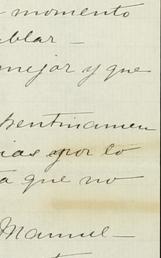 momento
ablar —
mejor y que
pentinamen
ias por lo
a que no
Manuel —